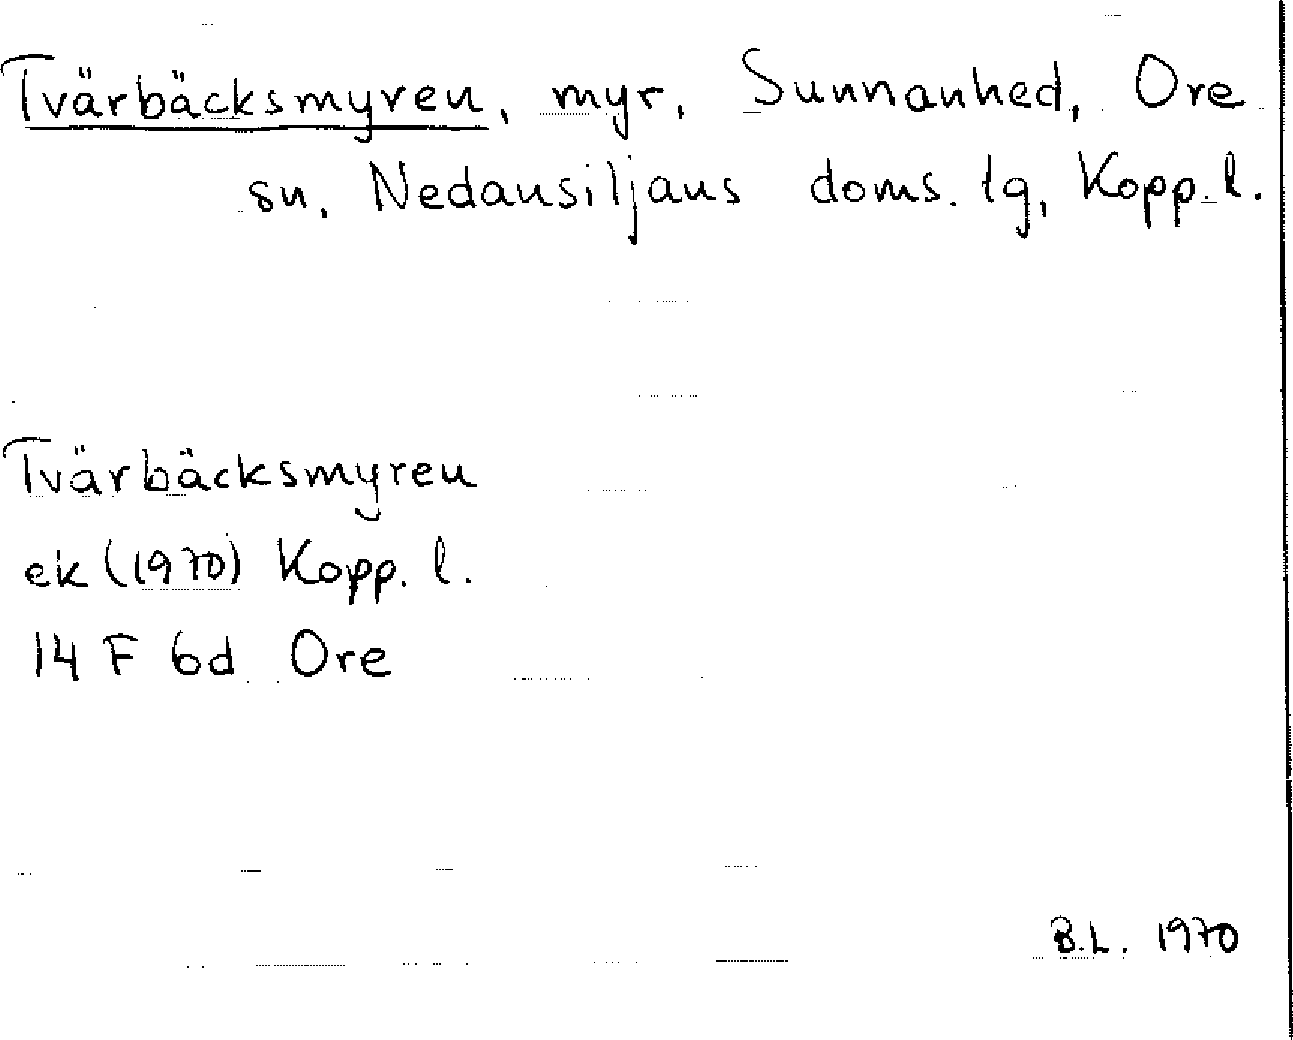 Tvärbäcksmyren, myr, Sunnanhed, Ore
sn, Nedansiljans doms. lg, Kopp. l.
Tvärbäcksmyren
ek (1970) Kopp. l.
14 F 6d Ore
B.L. 1970